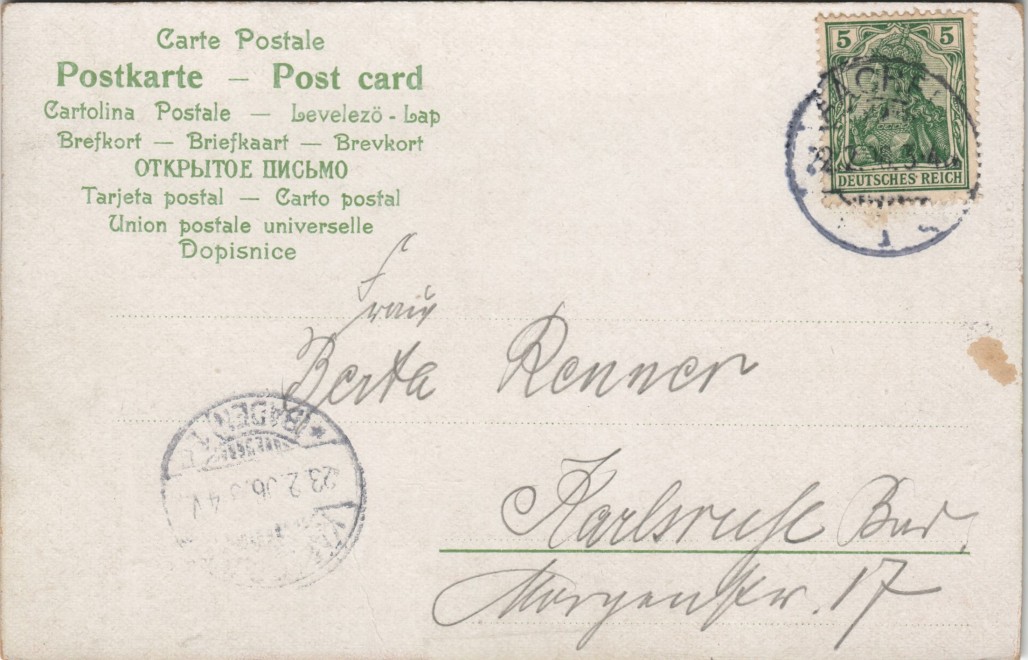 Carte Postale
Postkarte — Post card
Cartolina Postale — Levelező - Lap
Brefkort — Briefkaart — Brevkort
ОТКРЫТОЕ ПИСЬМО
Tarjeta postal — Carto postal
Union postale universelle
Dopisnice
5 5
DEUTSCHES REICH
Frau
Berta Renner
Karlsruhe Bad.
Morgenstr. 17
(BADEN)
23.2.06.